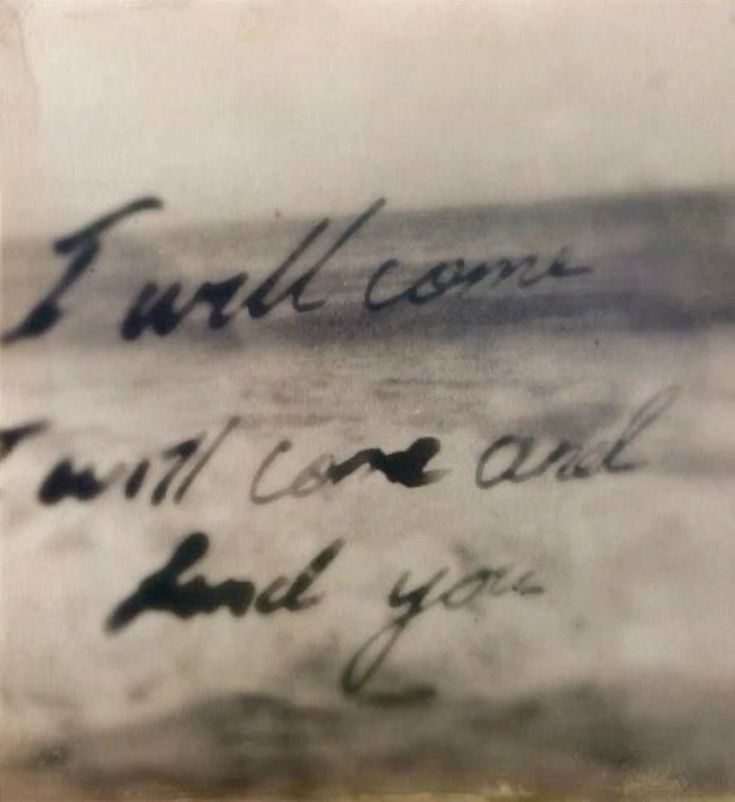 I will come
I will come and
find you